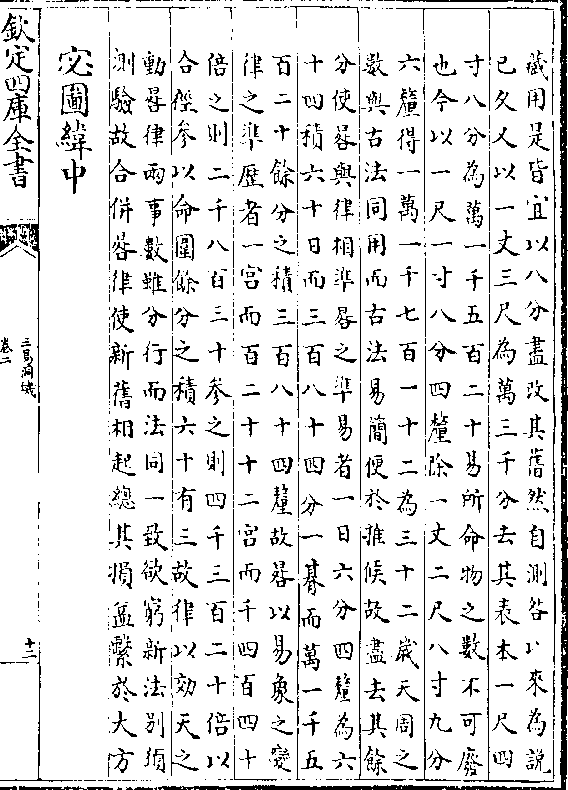 藏用是皆宜以八分盡改其舊然自測晷以來為說
已久又以一丈三尺為萬三千分去其表本一尺四
寸八分為萬一千五百二十易所命物之數不可廢
也今以一尺一寸八分四釐除一丈二尺八寸九分
六釐得一萬一千七百一十二為三十二歲天周之
數與古法同用而古法易簡便於推候故盡去其餘
分使晷與律相準晷之準易者一日六分四釐為六
十四積六十日而三百八十四分一朞而萬一千五
百二十餘分之積三百八十四釐故晷以易象之變
律之準歷者一宮而百二十十二宮而千四百四十
倍之則二千八百三十參之則四千三百二十倍以
合徑參以命圍餘分之積六十有三故律以効天之
動晷律兩事數雖分行而法同一致欲窮新法别須
測驗故合併晷律使新舊相起總其損益繫於大方
宓圖緯中
欽定四庫全書
三易洞璣
卷二
十二